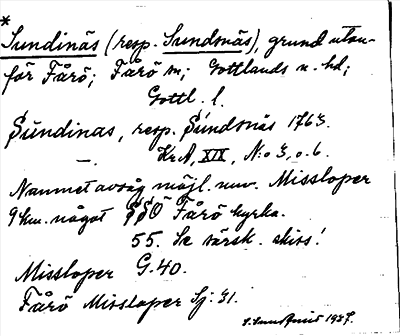 *
Sundinäs (resp. Sundsnäs), grund utan-
för Fårö; Fårö sn; Gottlands n. hd;
Gottl. l.
Sundinas, resp. Sundsnäs 1763.
—. Kr.A, XIX, N:o 3, o. 6.
Namnet avsåg möjl. nuv. Missloper
9 km. något SSO Fårö kyrka.
55. Se särsk. skiss!
Missloper G.40.
Fårö Missloper Sj. 31.
1937.